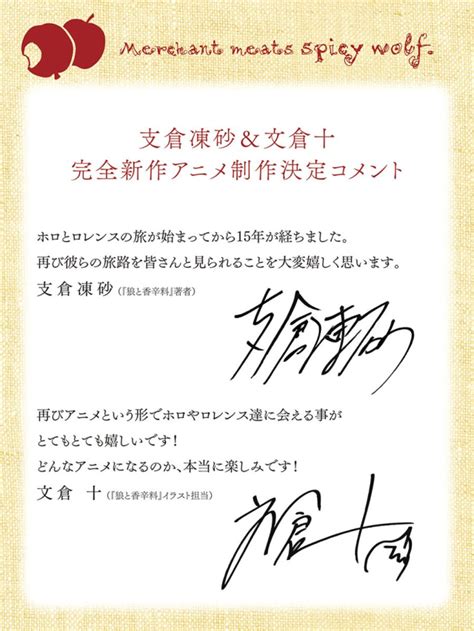 Merchant meats spicy wolf.
支倉凍砂&文倉十
完全新作アニメ制作決定コメント
ホロとロレンスの旅が始まってから15年が経ちました。
再び彼らの旅路を皆さんと見られることを大変嬉しく思います。
支倉凍砂(『狼と香辛料』著者)
支倉凍砂
再びアニメという形でホロやロレンス達に会える事が
とてもとても嬉しいです!
どんなアニメになるのか、本当に楽しみです!
文倉 十(『狼と香辛料』イラスト担当)
文倉十